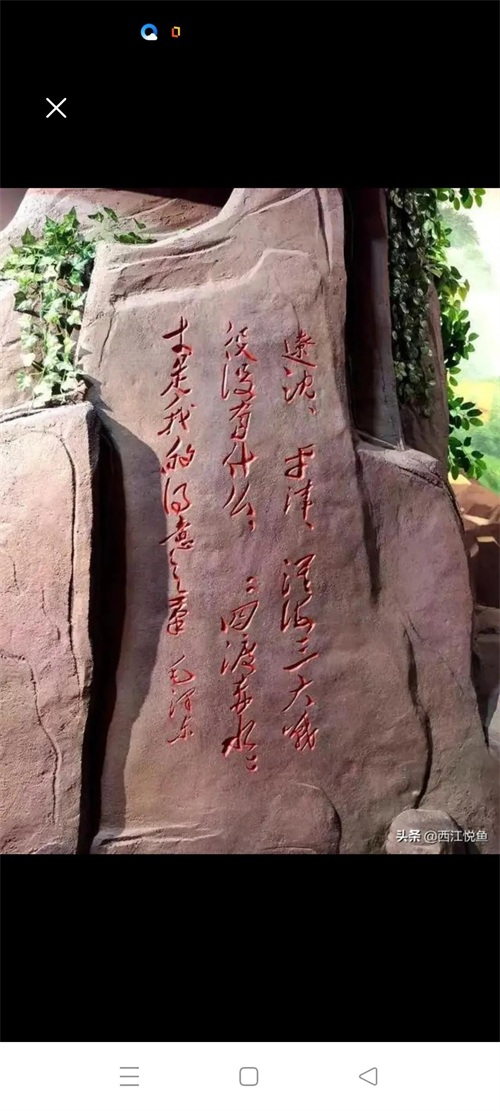 遼沈、平津、淮海三大战
役没有什么，“四渡赤水”
才是我的得意之笔 毛泽东
头条 @西江悦鱼